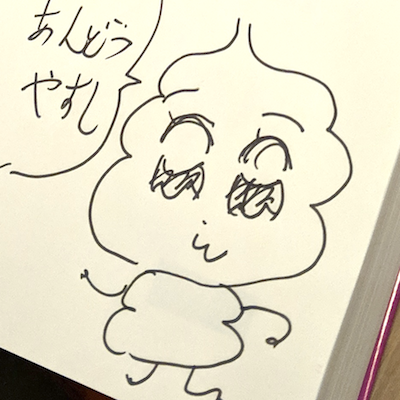 あんどう
やすし